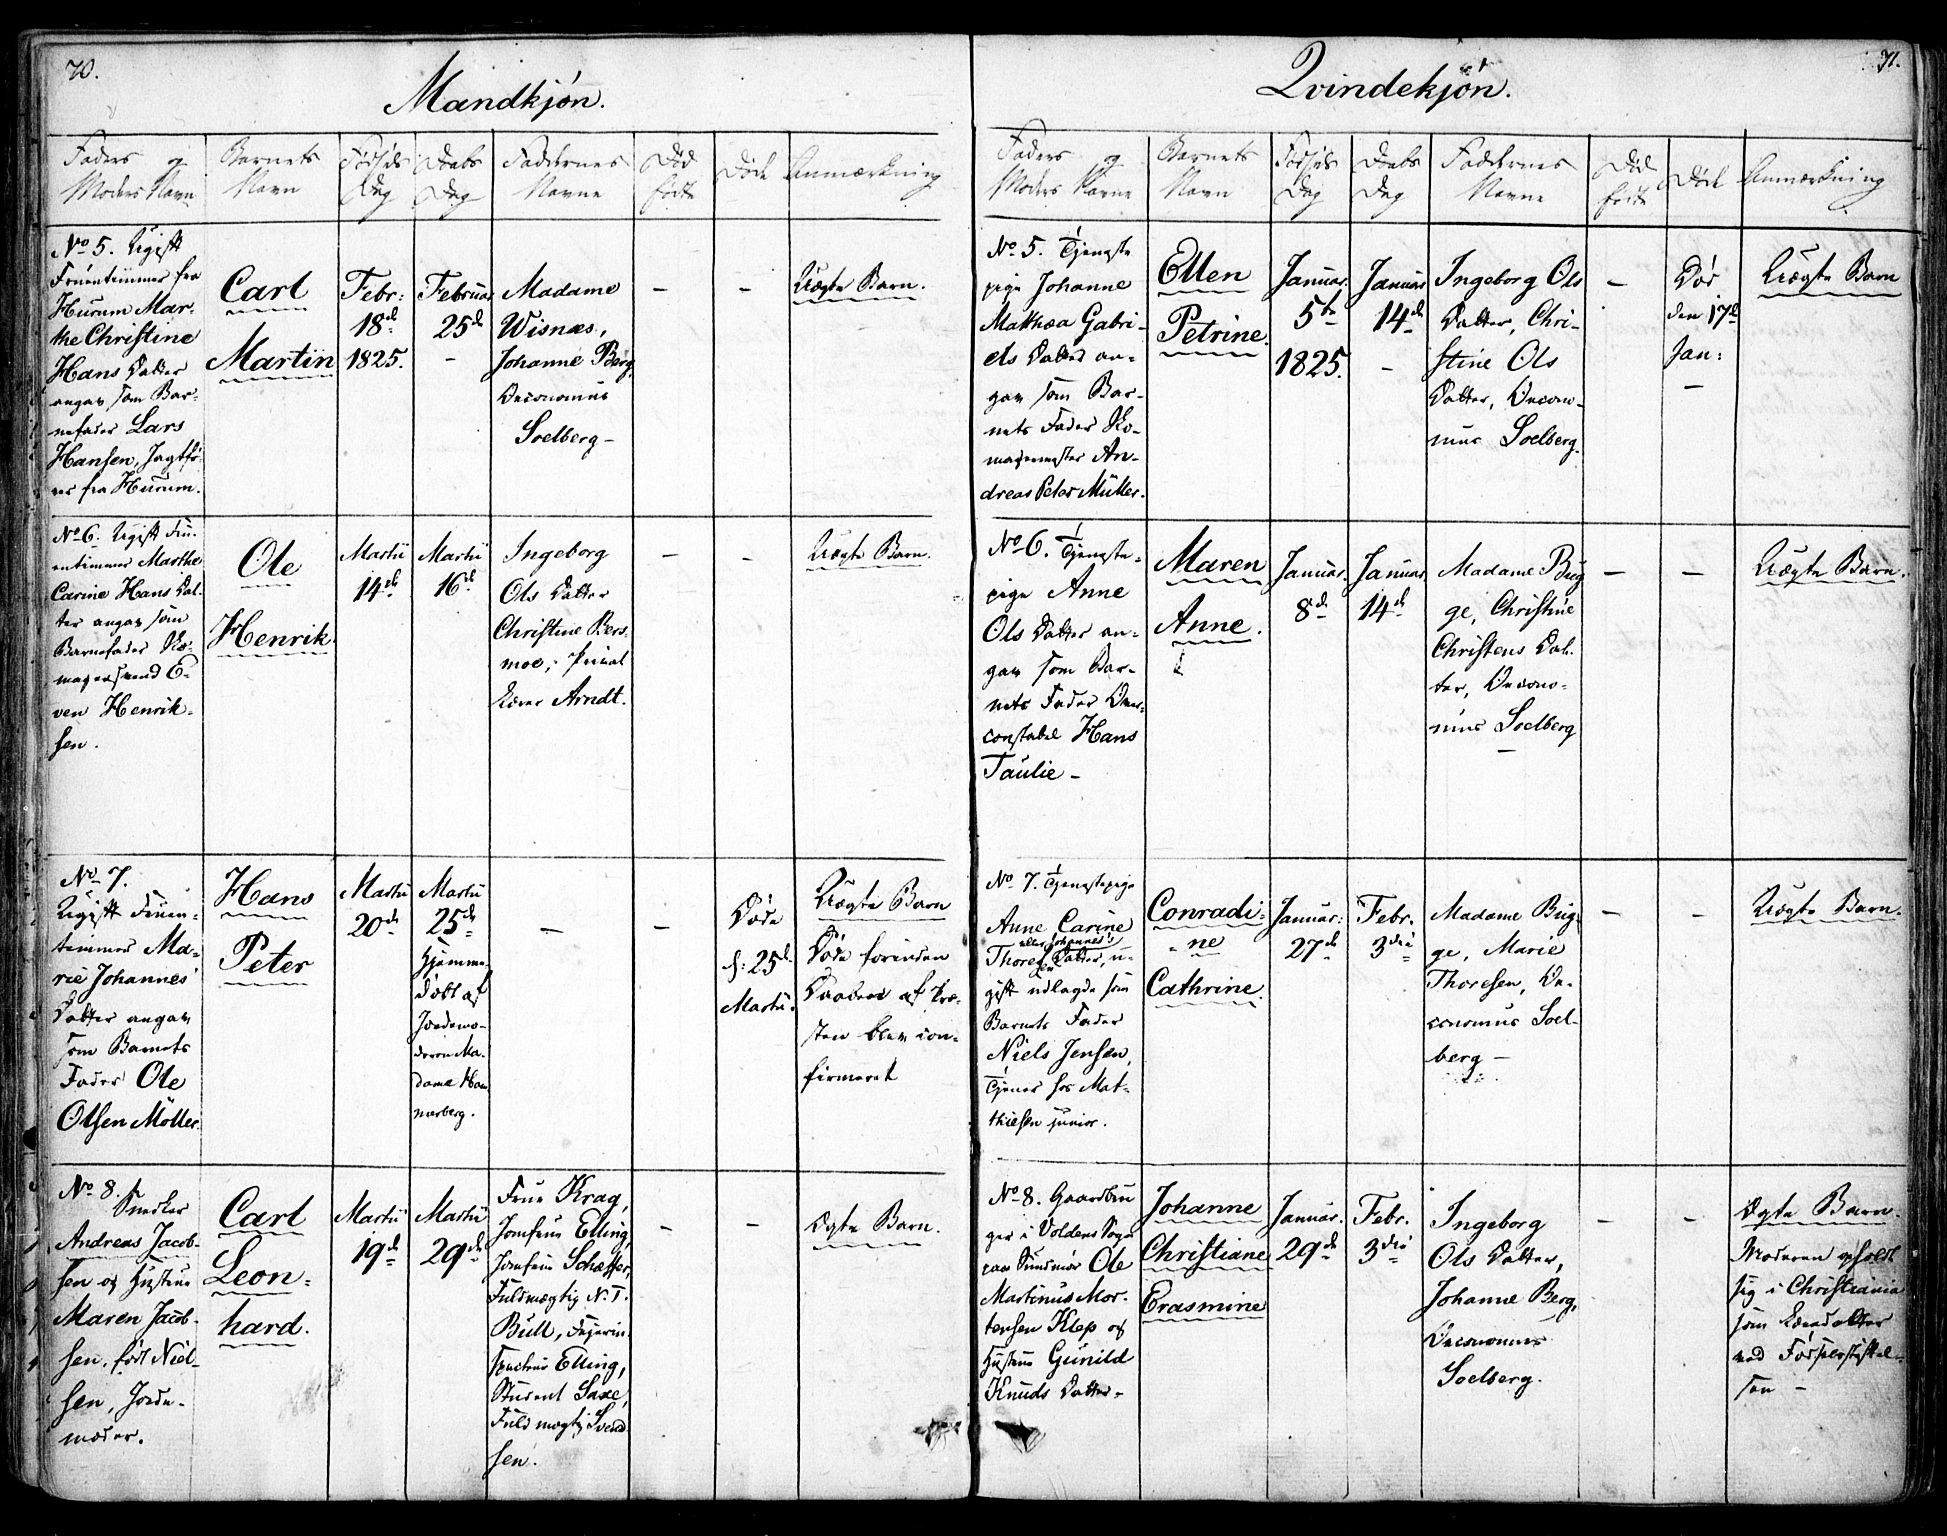 70.
Mandkjön.
Faders og
Moders Navn
Barnets
Navn
Fødsels
Dag
Daabs
Dag
Faddernes
Navne
Død
fødte
Døde
Anmærkning
No 5. Ugift
Fruentimmer fra
Hurum Mar-
the Christine
Hans Datter
angav som Bar-
nefader Lars
Hansen, Jagtfö-
rer fra Hurum.
Carl
Martin
Febr:
18de
1825.
Februar
25de
-
Madame
Wisnæs,
Johanne Berg,
Oeconomus
Soelberg -
-
-
Uægte Barn.
No 6. Ugift Fru-
entimmer Marthe
Carine Hans Dat-
ter angav som
Barnefader Ko-
magersvend E-
ven Henrik-
sen.
Ole
Henrik
Martii
14de
Martii
16de
Ingeborg
Ols Datter
Christine Bers
moe, Privat
Lærer Arndt.
-
-
Uægte Barn.
No 7.
Ugift Fruen-
timmer Ma-
rie Johannes
Datter angav
som Barnets
Fader Ole
Olsen Möller.
Hans
Peter
Martii
20de
Martii
25de
Hjemme-
döbt af
Jordemo-
deren Ma-
dame Ham
merberg.
-
-
Døde
d: 25de
Martii.
Uægte Barn
Døde forinden
Daaben af Præ-
sten blev con-
firmeret
No 8.
Snedker
Andreas Jacob-
sen og Hustrue
Maren Jacob-
sen, født Niel-
sen, Jorde-
moder.
Carl
Leon-
hard.
Martii
19de
Martii
29de
Frue Krag,
Jomfrue Elling,
Jomfrue Schæffer,
Fuldmægtig N. T.
Bull, Fyrin-
specteur Elling,
Student Saxe,
Fuldmægtig Svend
sen.
-
-
Ægte Barn.
71.
Qvindekjön.
Faders og
Moders Navne
Barnets
Navn
Fødsels
Dag
Daabs
Dag
Faddernes
Navne
Død
fødte
Døde
Anmærkning
No 5. Tjeneste
pige Johanne
Mathea Gabri-
els Datter an-
gav som Bar-
nets Fader Ko-
magermester An-
dreas Peter Müller.
Ellen
Petrine.
Januar.
5te
1825.
Januar
14de
-
Ingeborg Ols
Datter, Chri-
stine Ols
Datter, Oecono-
mus Soelberg.
-
Død
den 17de
Jan:
-
Uægte Barn
No 6. Tjeneste-
pige Anne
Ols Datter an-
gav som Bar-
nets Fader Over-
constabel Hans
Taulie -
Maren
Anne.
Januar.
8de
Januar.
14de
Madame Bug
ge, Christine
Christens Dat-
ter, Oecono-
mus Soelberg
-
-
-
Uægte Barn.
No 7. Tjenestepige
Anne Carine
eller Johannes's
Thoresen Datter, u-
gift udlagde som
Barnets Fader
Niels Jensen,
Tjener hos Mat-
thiesen junior.
Conradi-
ne
Cathrine.
Januar:
27de
Febr.
3die
Madame Bug-
ge, Marie
Thoresen, Oe-
conomus Soel-
berg -
-
-
Uægte Barn.
No 8. Gaardbru
ger i Voldens Sogn
paa Sundmör Ole
Martinus Mor-
tensen Klep og
Hustrue Gunild
Knuds Datter -
Johanne
Christiane
Erasmine
Januar.
29de
Febr.
3die
Ingeborg
Ols Datter,
Johanne Berg,
Oeconomus
Soelberg.
-
-
Ægte Barn.
Moderen opholdt
sig i Christiania
som
ved Fødselsstiftel-
sen -